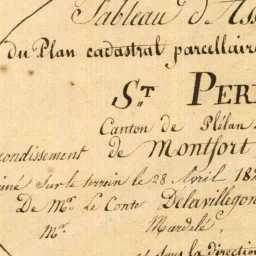 Tableau d'Ass
du Plan cadastral parcellaire
ST. PER
Canton de Plélan
ondissement de Montfort
iné sur le terrein le 28 Avril 182
De Mr. Le Comte Delavillegon
Mr. Mardelé,
et sous la direction